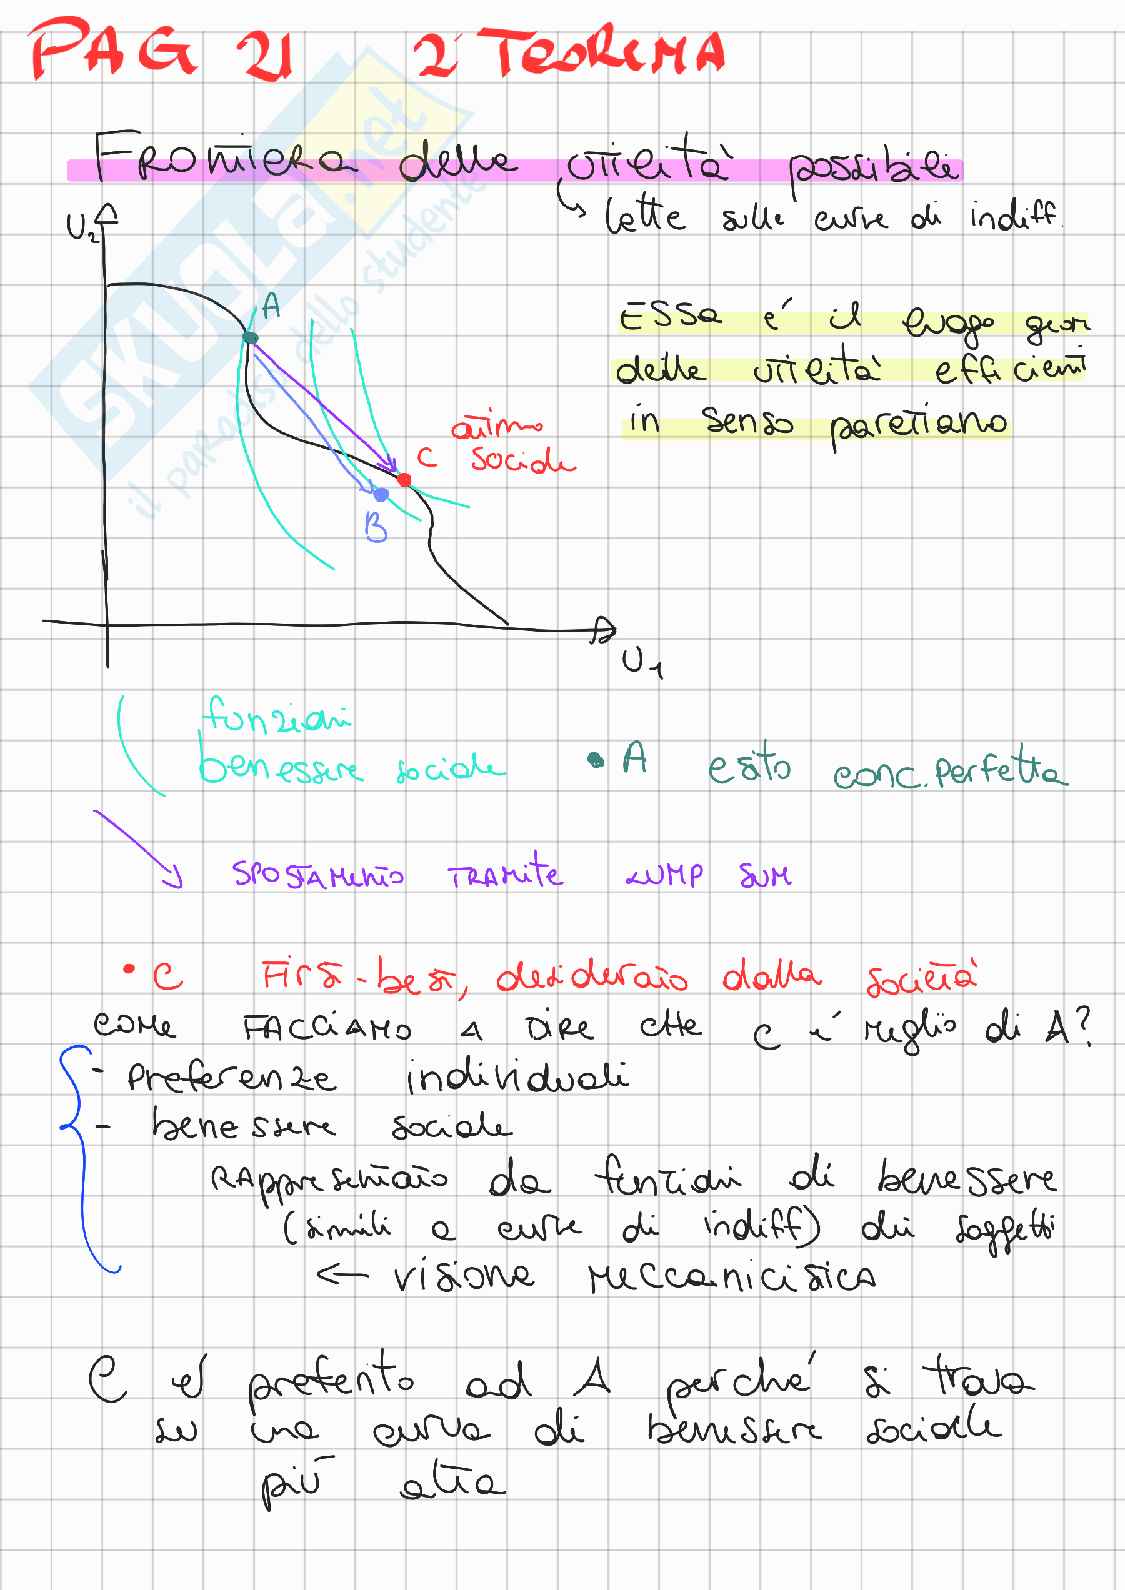 PAG 21 2° TEOREMA
FRONTIERA delle utilità possibili
lette sulle curve di indiff.
U₂
A
ESSA é il luogo geom
delle utilità efficienti
in senso paretiano
ottimo
C sociale
B
U₁
funzioni
benessere sociale
• A esito conc. perfetta
SPOSTAMENTO TRAMITE LUMP SUM
• C FIRST-best, desiderato dalla società
COME FACCIAMO A DIRE CHE C é meglio di A?
- preferenze individuali
- benessere sociale
RAppresentato da funzioni di benessere
(simili a curve di indiff) dei soggetti
← visione meccanicistica
C é preferito ad A perché si trova
su una curva di benessere sociale
più alta
SKUOLA.net
il paradiso dello studente